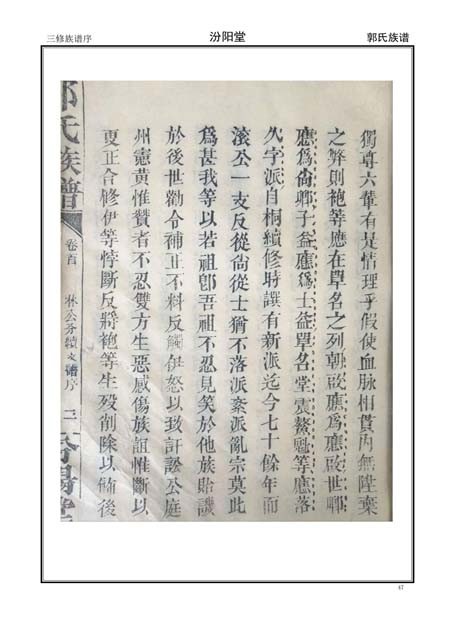 三修族谱序
汾阳堂
郭氏族谱
獨尊六軰有是情理乎假使血脉相貫內無陞棄
之弊則袍等應在單名之列朝啟應爲應啟世卿
應爲尙卿子益應爲士益單名堂震鰲等應落
久字派自桐續修時譔有新派迄今七十餘年而
滾公一支反從尙從士猶不落派紊派亂宗莫此
爲甚我等以若祖卽吾祖不忍見笑於他族貽譏
於後世勸令補正不料反觸伊怒以致訐訟公庭
州憲黃惟贊者不忍雙方生惡感傷族誼惟斷以
更正合修伊等悖斷反將袍等生歿削除以備後
氏族譜
卷首
林公分續支譜序
二
47